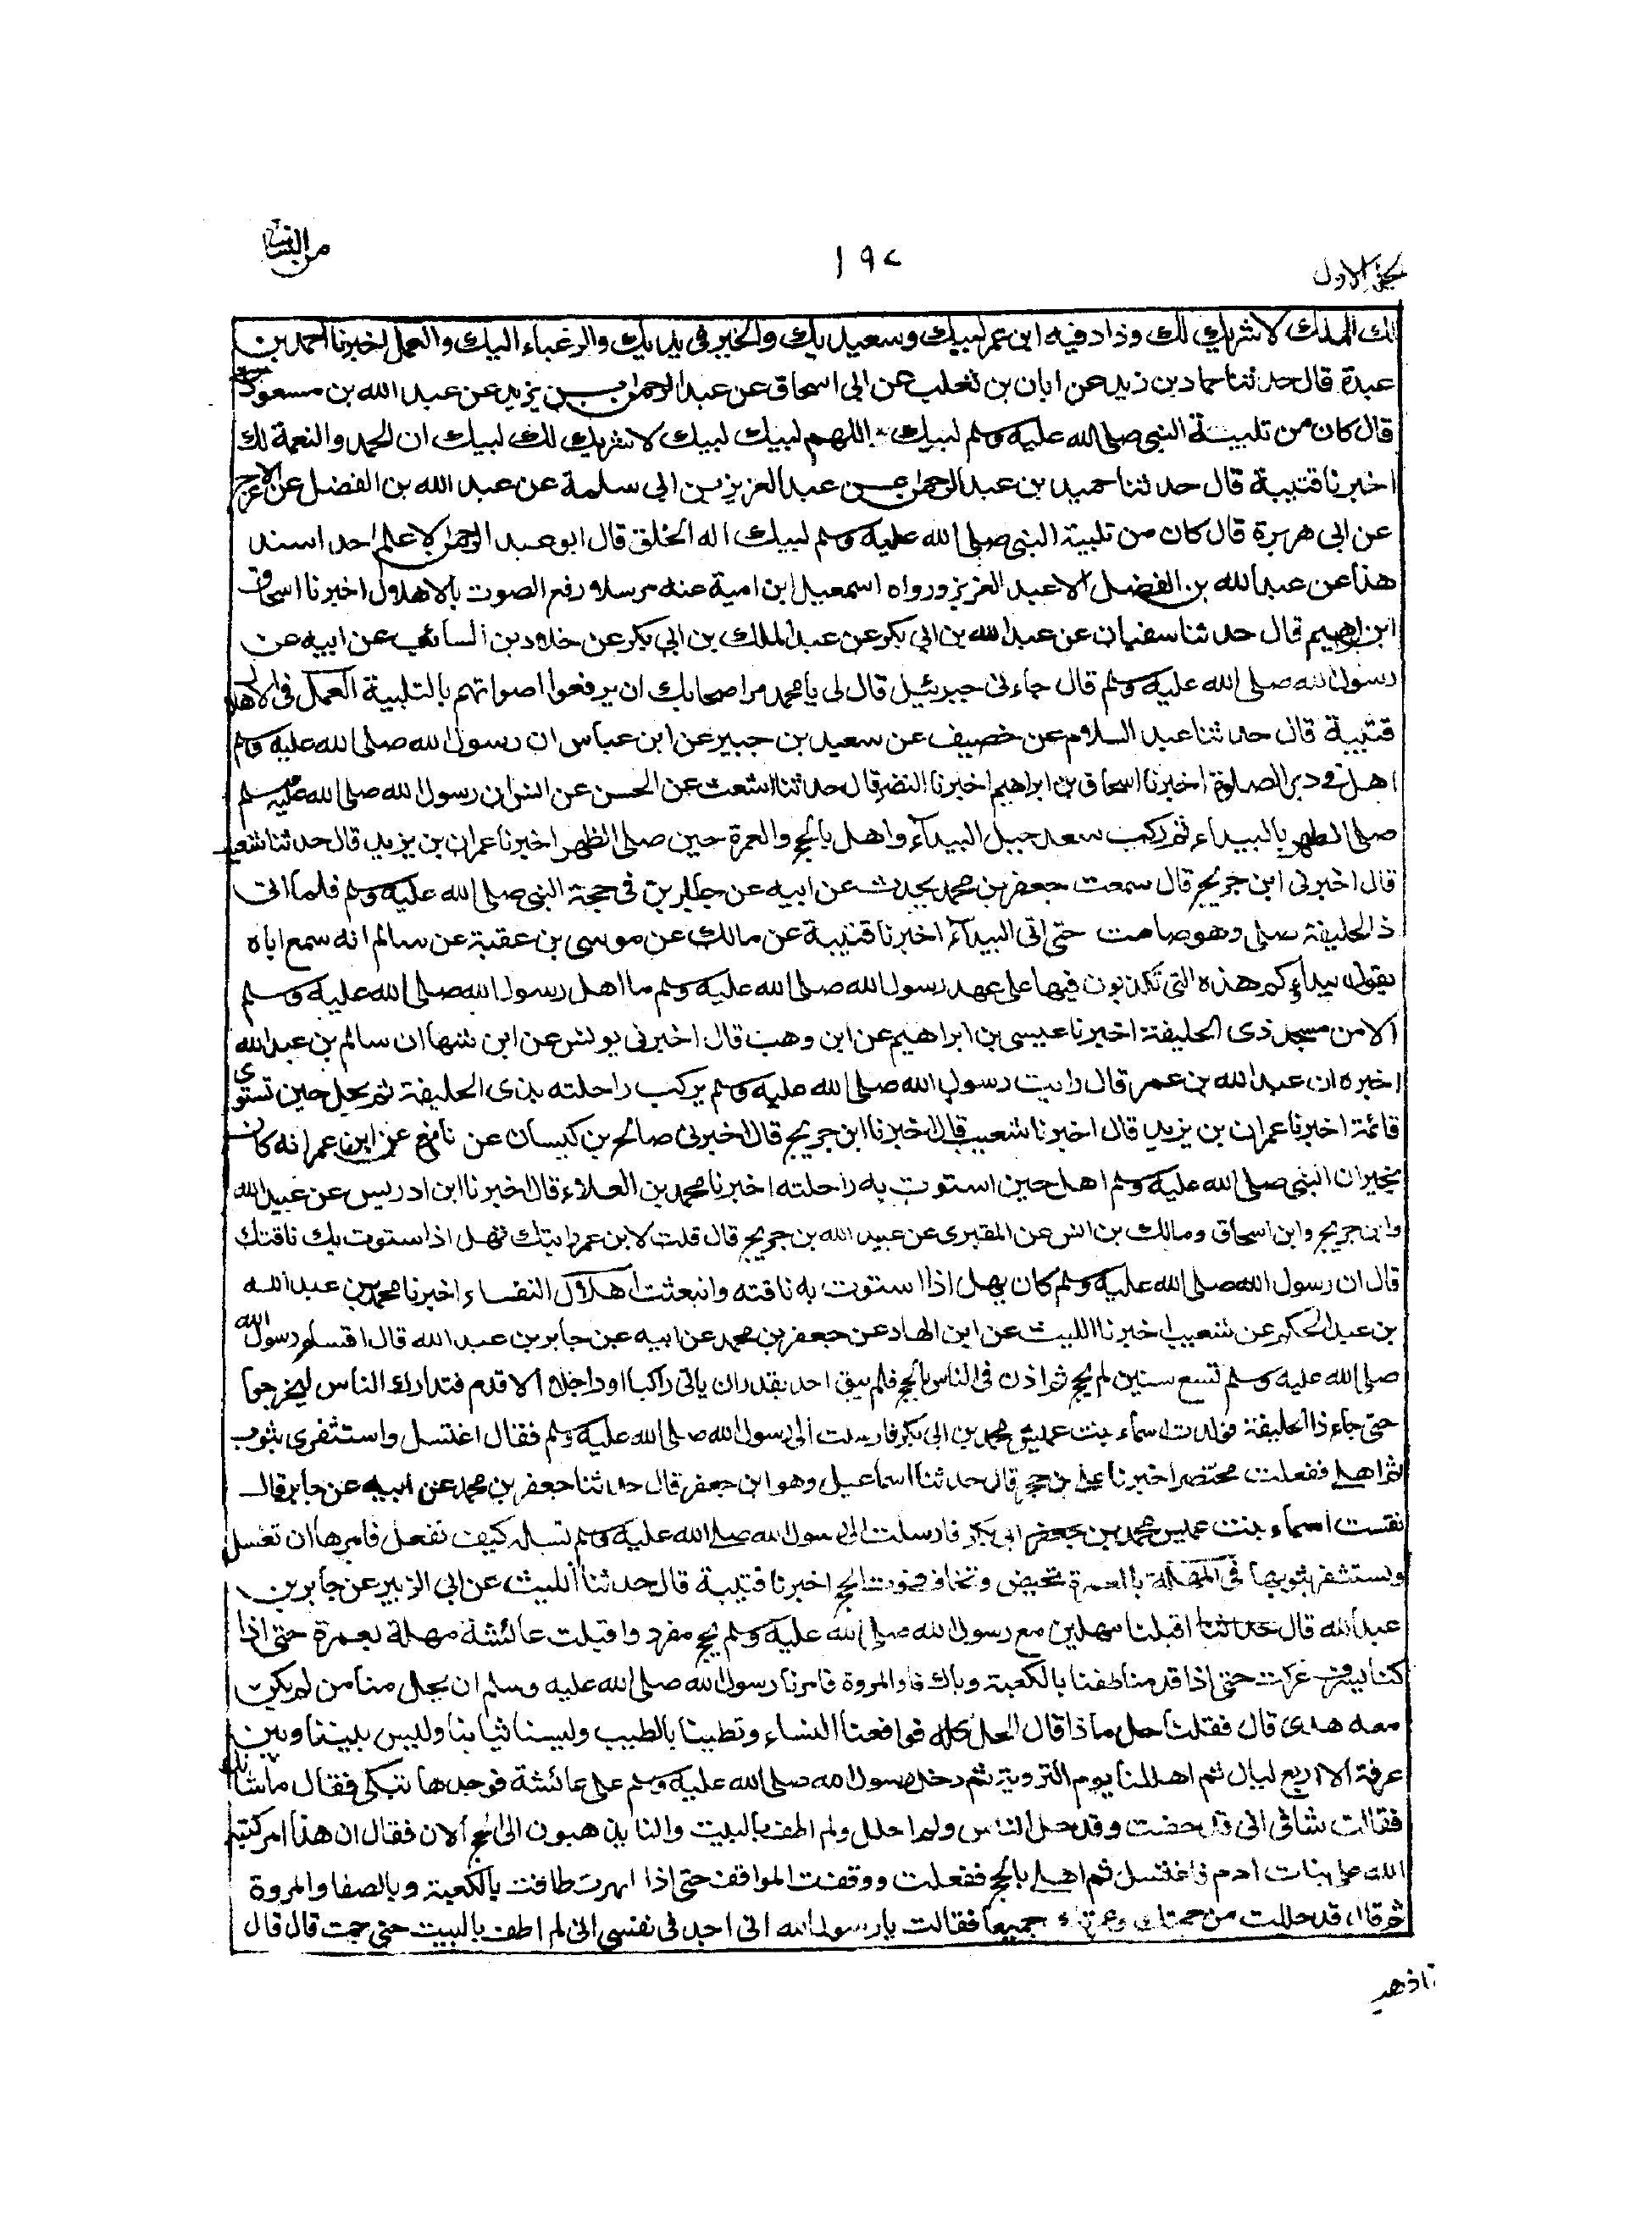 الجزء الاول
١٩٧
من النسائ
لك الملك لا شريك لك وزاد فيه ابن عمر لبيك وسعيديك والخير فى يديك والرغباء اليك والعمل اخبرنا احمد بن
عبدة قال حدثنا حماد بن زيد عن ابان بن تغلب عن ابى اسحاق عن عبد الرحمن بن يزيد عن عبد الله بن مسعود
قال كان من تلبية النبى صلى الله عليه وسلم لبيك اللهم لبيك لبيك لا شريك لك لبيك ان الحمد والنعمة لك
اخبرنا قتيبة قال حدثنا حميد بن عبد الرحمن عن عبد العزيز بن ابى سلمة عن عبد الله بن الفضل عن الاعرج
عن ابى هريرة قال كان من تلبية النبى صلى الله عليه وسلم لبيك اله الخلق قال ابو عبد الرحمن لا علم احد اسند
هذا عن عبد الله بن الفضل الا عبد العزيز ورواه اسمعيل ابن امية عنه مرسلا رفع الصوت بالاهلال اخبرنا اسحاق
ابن ابراهيم قال حدثنا سفيان عن عبد الله بن ابى بكر عن عبد الملك بن ابى بكر عن خلاد بن السائب عن ابيه عن
رسول الله صلى الله عليه وسلم قال جاءنى جبرئيل قال لى يا محمد مر اصحابك ان يرفعوا اصواتهم بالتلبية العمل فى الاهلال
قتيبة قال حدثنا عبد السلام عن خصيف عن سعيد بن جبير عن ابن عباس ان رسول الله صلى الله عليه وسلم
اهل فى دبر الصلوة اخبرنا اسحاق بن ابراهيم اخبرنا النضر قال حدثنا اشعث عن الحسن عن انس ان رسول الله صلى الله عليه وسلم
صلى الظهر بالبيداء ثم ركب سعد جبل البيدآء واهل بالحج والعمرة حين صلى الظهر اخبرنا عمران بن يزيد قال حدثنا شعيب
قال اخبرنى ابن جريج قال سمعت جعفر بن محمد يحدث عن ابيه عن جابر بن فى حجة النبى صلى الله عليه وسلم فلما اتى
ذ الحليفة صلى وهو صامت حتى اتى البيدآء اخبرنا قتيبة عن مالك عن موسى بن عقبة عن سالم انه سمع اباه
يقول بيداءكم هذه التى تكذبون فيها على عهد رسول الله صلى الله عليه وسلم ما اهل رسول الله صلى الله عليه وسلم
الا من مسجد ذى الحليفة اخبرنا عيسى بن ابراهيم عن ابن وهب قال اخبرنى يونس عن ابن شهاب ان سالم بن عبد الله
اخبره ان عبد الله بن عمر قال رايت رسول الله صلى الله عليه وسلم يركب راحلته بذى الحليفة ثم يحل حين تستوى
قائمة اخبرنا عمران بن يزيد قال اخبرنا شعيب قال اخبرنا ابن جريج قال اخبرنى صالح بن كيسان عن نافع عن ابن عمر انه كان
يخبر ان النبى صلى الله عليه وسلم اهل حين استوت به راحلته اخبرنا محمد بن العلاء قال اخبرنا ابن ادريس عن عبيد الله
وابن جريج وابن اسحاق ومالك بن انس عن المقبرى عن عبيد الله بن جريج قال قلت لابن عمر رايتك تهل اذا ستوت بك ناقتك
قال ان رسول الله صلى الله عليه وسلم كان يهل اذا استوت به ناقته وانبعثت اهلال النفساء اخبرنا محمد بن عبد الله
بن عبد الحكم عن شعيب اخبرنا الليث عن ابن الهاد عن جعفر بن محمد عن ابيه عن جابر بن عبد الله قال اقسلم رسول الله
صلى الله عليه وسلم تسع سنين لم يحج ثم اذن فى الناس بالحج فلم يبق احد يقدر ان ياتى راكبا او راجلا الا قدم فتدارك الناس ليخرجوا
حتى جاء ذا الحليفة فولدت اسماء بنت عميس محمد بن ابى بكر فارسلت الى رسول الله صلى الله عليه وسلم فقال اغتسل واستثفرى بثوب
ثم اهلى ففعلت مختصر اخبرنا على بن حجر قال حدثنا اسماعيل وهو ابن جعفر قال حدثنا جعفر بن محمد عن ابيه عن جابر قال
نفست اسماء بنت عميس محمد بن جعفر ابى بكر فارسلت الى رسول الله صلى الله عليه وسلم تسئله كيف تفعل فامرها ان تغسل
وتستثفر بثوبها فى المهلة بالعمرة تحيض وتخاف فوت الحج اخبرنا قتيبة قال حدثنا الليث عن ابى الزبير عن جابر بن
عبد الله قال حدثنا اقبلنا مهلين مع رسول الله صلى الله عليه وسلم بحج مفرد واقبلت عائشة مهلة بعمرة حتى اذا
كنا بسرف عركت حتى اذا قدمنا طفنا بالكعبة وبالصفا والمروة فامرنا رسول الله صلى الله عليه وسلم ان يحل منا من لم يكن
معه هدى قال فقلنا حل ماذا قال الحل كله فواقعنا النساء وتطيبنا بالطيب ولبسنا ثيابنا وليس بيننا وبين
عرفة الا اربع ليال ثم اهللنا يوم التروية ثم دخل رسول الله صلى الله عليه وسلم على عائشة فوجدها تبكى فقال ما شانك
فقالت شانى انى قد حضت وقد حل الناس ولم احلل ولم اطف بالبيت والناس يذهبون الى الحج الان فقال ان هذا امر كتبه
الله على بنات ادم فاغتسل ثم اهلى بالحج ففعلت ووقفت المواقف حتى اذا طهرت طافت بالكعبة وبالصفا والمروة
ثم قال قد حللت من حجتك وعمرتك جميعا فقالت يا رسول الله انى اجد فى نفسى انى لم اطف بالبيت حتى حججت قال قال
فاذهب